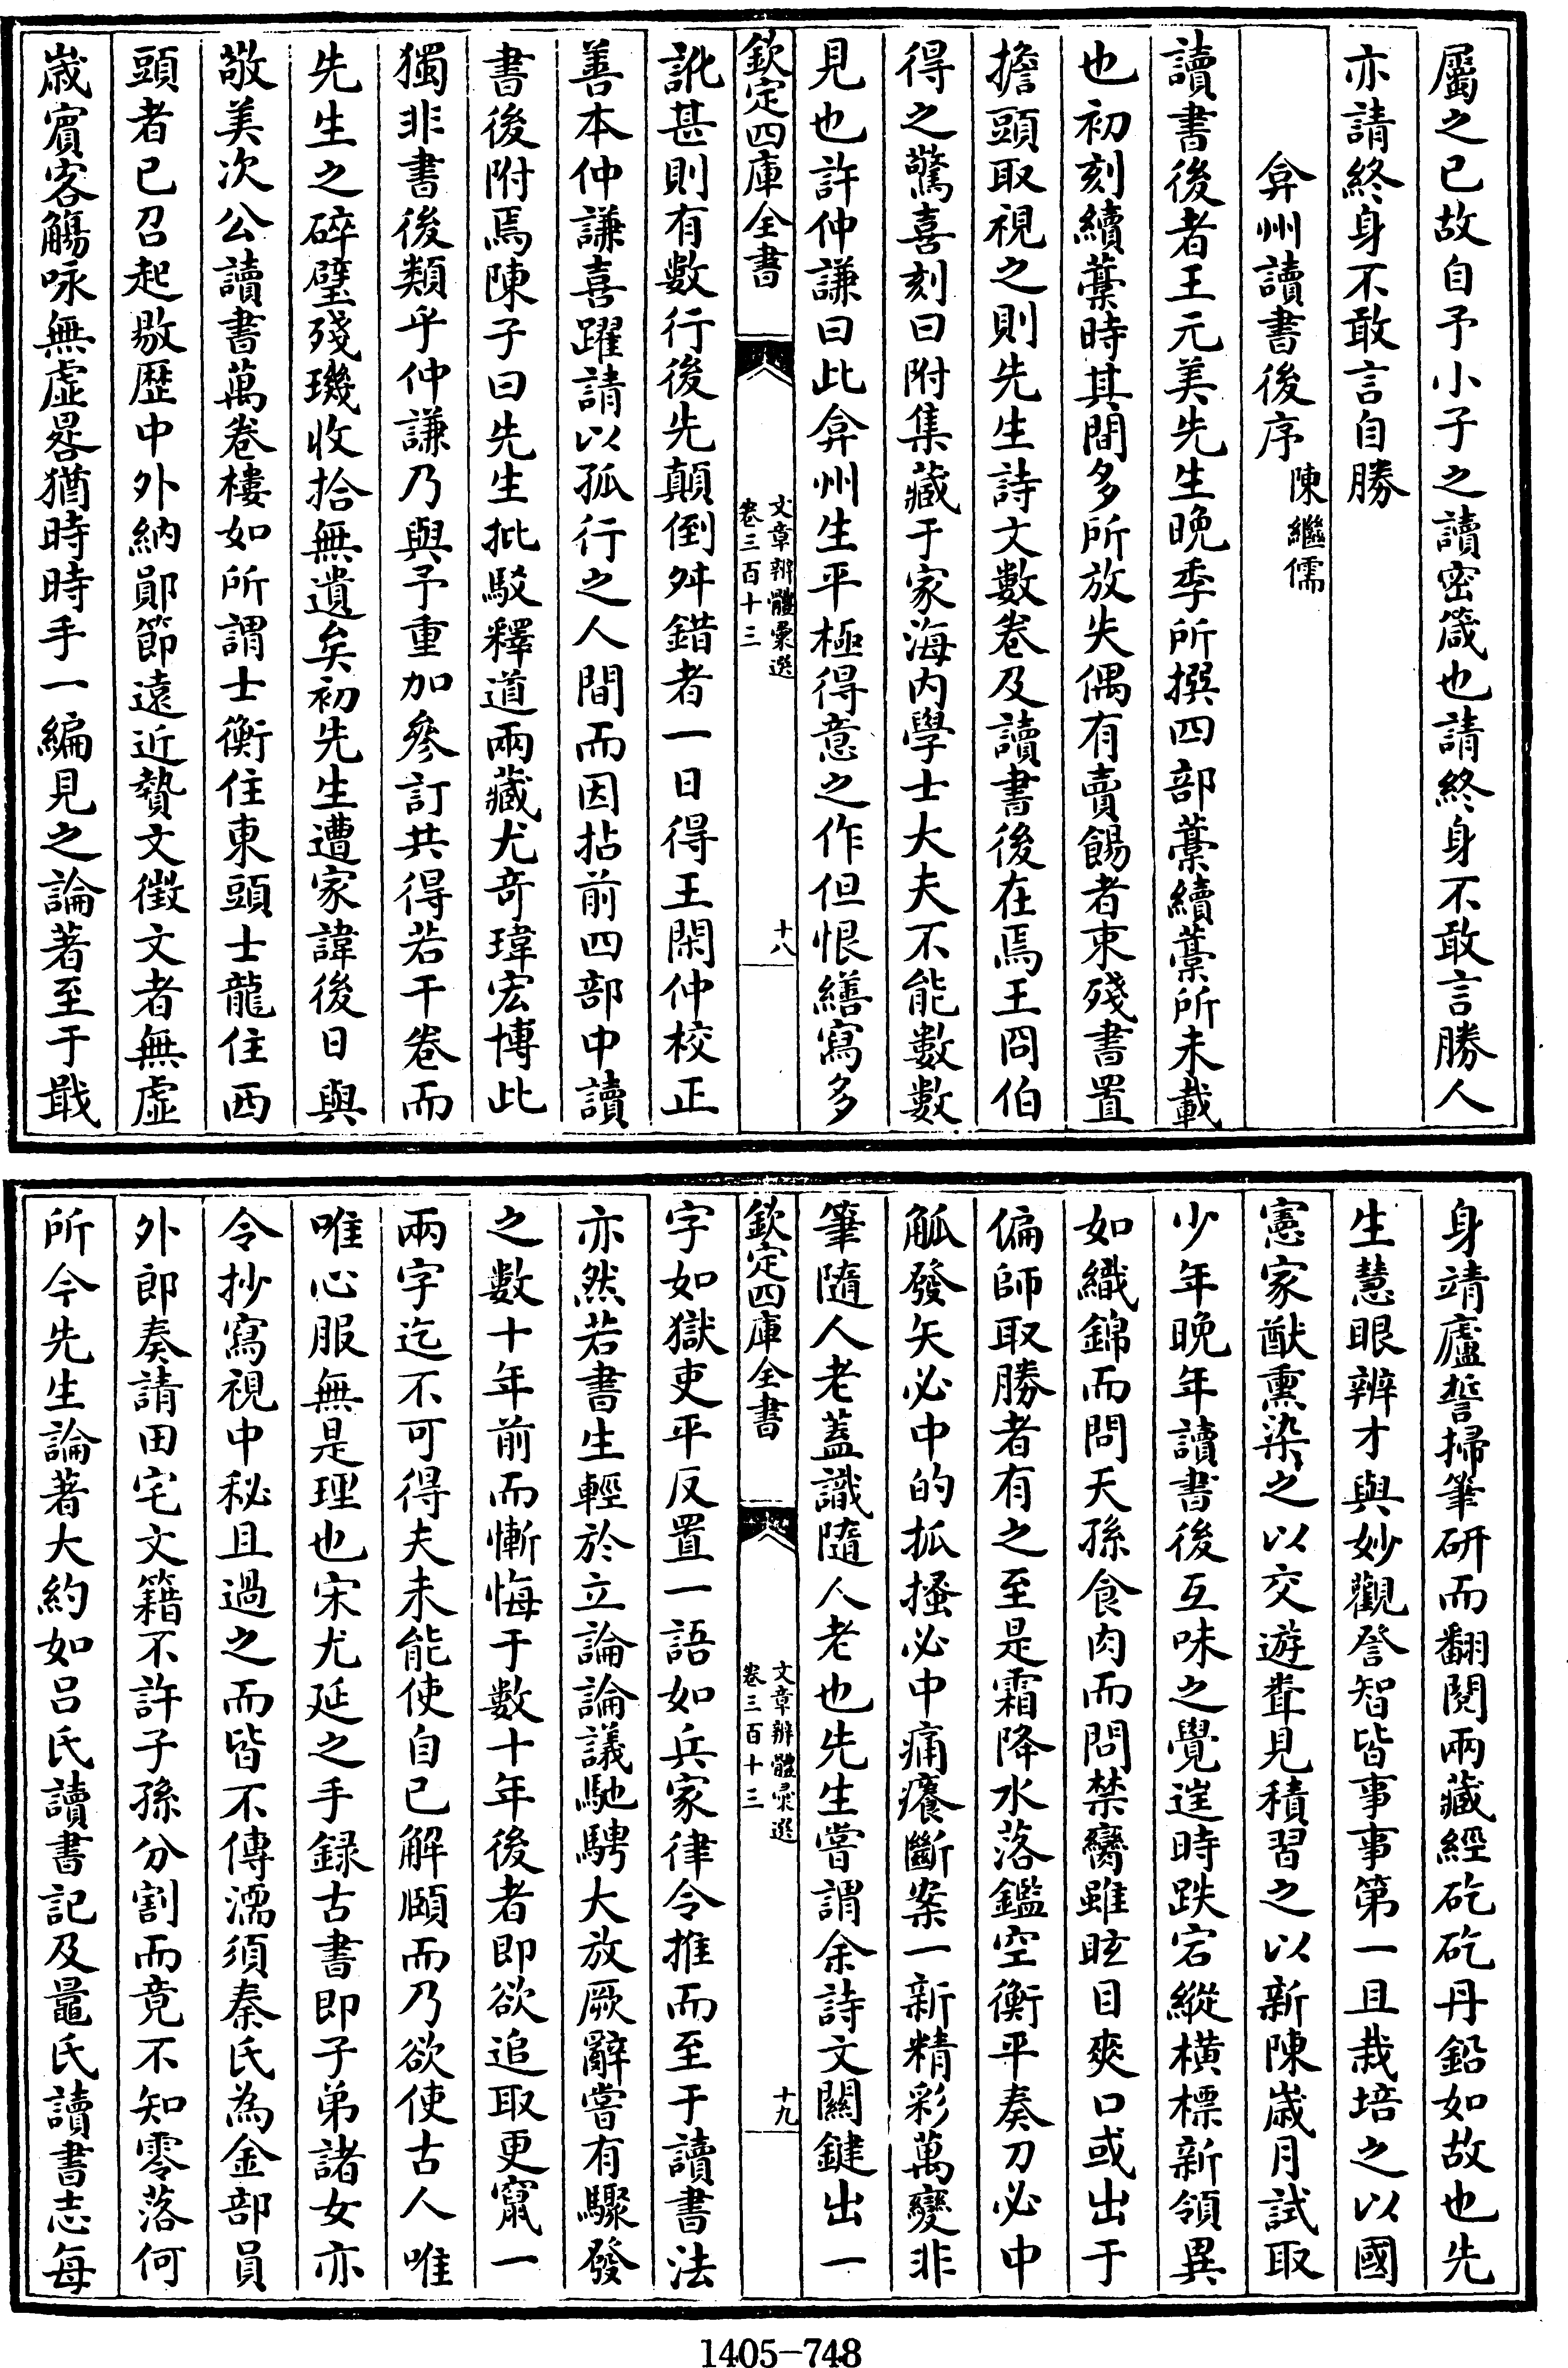 屬之已故自予小子之讀密箴也請終身不敢言勝人
亦請終身不敢言自勝
弇州讀書後序
陳繼儒
讀書後者王元美先生晚季所撰四部藁續藁所未載
也初刻續藁時其間多所放失偶有賣餳者束殘書置
擔頭取視之則先生詩文數卷及讀書後在焉王冏伯
得之驚喜刻曰附集藏于家海內學士大夫不能數數
見也許仲謙曰此弇州生平極得意之作但恨繕寫多
欽定四庫全書
文章辨體彙選
卷三百十三
十八
訛甚則有數行後先顛倒舛錯者一日得王閑仲校正
善本仲謙喜躍請以孤行之人間而因拈前四部中讀
書後附焉陳子曰先生批駁釋道兩藏尤竒瑋宏博此
獨非書後類乎仲謙乃與予重加參訂共得若干卷而
先生之碎璧殘璣收拾無遺矣初先生遭家諱後日與
敬美次公讀書萬卷樓如所謂士衡住東頭士龍住西
頭者已召起敭歴中外納鄖節遠近贄文徵文者無虛
嵗賓客觴咏無虛晷猶時時手一編見之論著至于戢
身靖廬誓掃筆研而翻閱兩藏經矻矻丹鉛如故也先
生慧眼辨才與妙觀詧智皆事事第一且栽培之以國
憲家猷熏染之以交遊聋見積習之以新陳嵗月試取
少年晚年讀書後互味之覺逞時跌宕縱橫標新領異
如織錦而問天孫食肉而問禁臠雖眩目爽口或出于
偏師取勝者有之至是霜降水落鑑空衡平奏刀必中
觚發矢必中的抓搔必中痛癢斷案一新精彩萬變非
筆隨人老蓋識隨人老也先生嘗謂余詩文關鍵出一
欽定四庫全書
文章辨體彙選
卷三百十三
十九
字如獄吏平反置一語如兵家律令推而至于讀書法
亦然若書生輕於立論論議馳騁大放厥辭嘗有驟發
之數十年前而慚悔于數十年後者即欲追取更竄一
兩字迄不可得夫未能使自已解頤而乃欲使古人唯
唯心服無是理也宋尤延之手録古書即子弟諸女亦
令抄寫視中秘且過之而皆不傳濡須秦氏為金部員
外郎奏請田宅文籍不許子孫分割而竟不知零落何
所今先生論著大約如呂氏讀書記及鼂氏讀書志每
1405-748